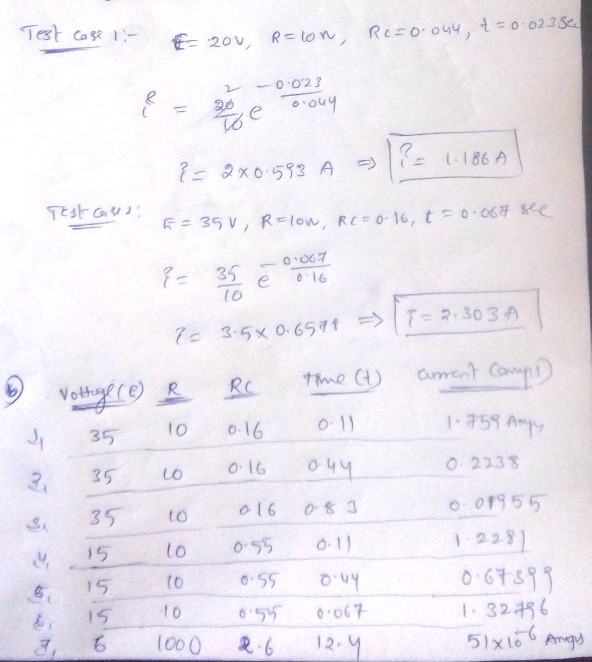 Test case 1:- E = 20V, R = 10Ω, RC = 0.044, t = 0.023 Sec
i = 20/10 e -0.023/0.044
2
i = 2 x 0.593 A ⇒ i = 1.186 A
Test case 2: E = 35 V, R = 10Ω, RC = 0.16, t = 0.067 sec
i = 35/10 e -0.067/0.16
i = 3.5 x 0.6579 ⇒ i = 2.303 A
b) Voltage (E) R RC time (t) current (amps)
1, 35 10 0.16 0.11 1.759 Amps
2, 35 10 0.16 0.44 0.2238
3, 35 10 0.16 0.83 0.01955
4, 15 10 0.55 0.11 1.2281
5, 15 10 0.55 0.44 0.67399
6, 15 10 0.55 0.067 1.32796
7, 6 1000 2.6 12.4 51x10-6 Amps